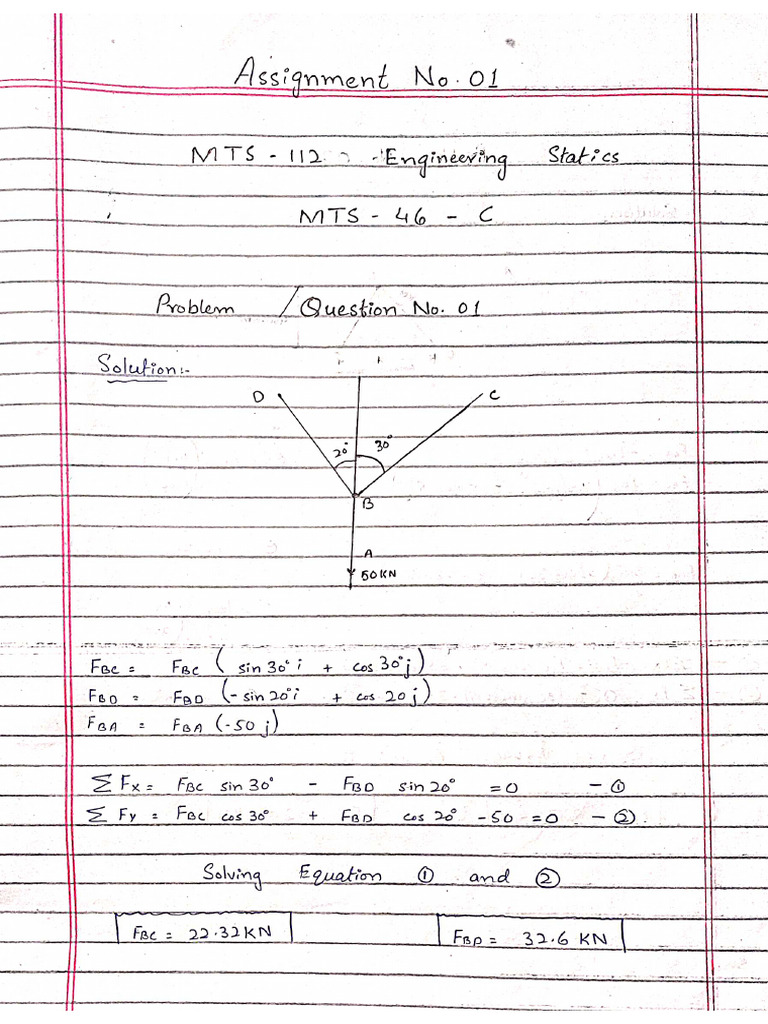 Assignment No. 01
MTS - 112 Engineering Statics
MTS - 46 - C
Problem / Question No. 01
Solution:-
D C
20° 30°
B
A
50KN
FBC = FBC (sin 30° i + cos 30° j)
FBD = FBD (-sin 20° i + cos 20 j)
FBA = FBA (-50 j)
ΣFx = FBC sin 30° - FBD sin 20° = 0 - ①
ΣFy = FBC cos 30° + FBD cos 20° - 50 = 0 - ②.
Solving Equation ① and ②
FBC = 22.32KN FBD = 32.6 KN